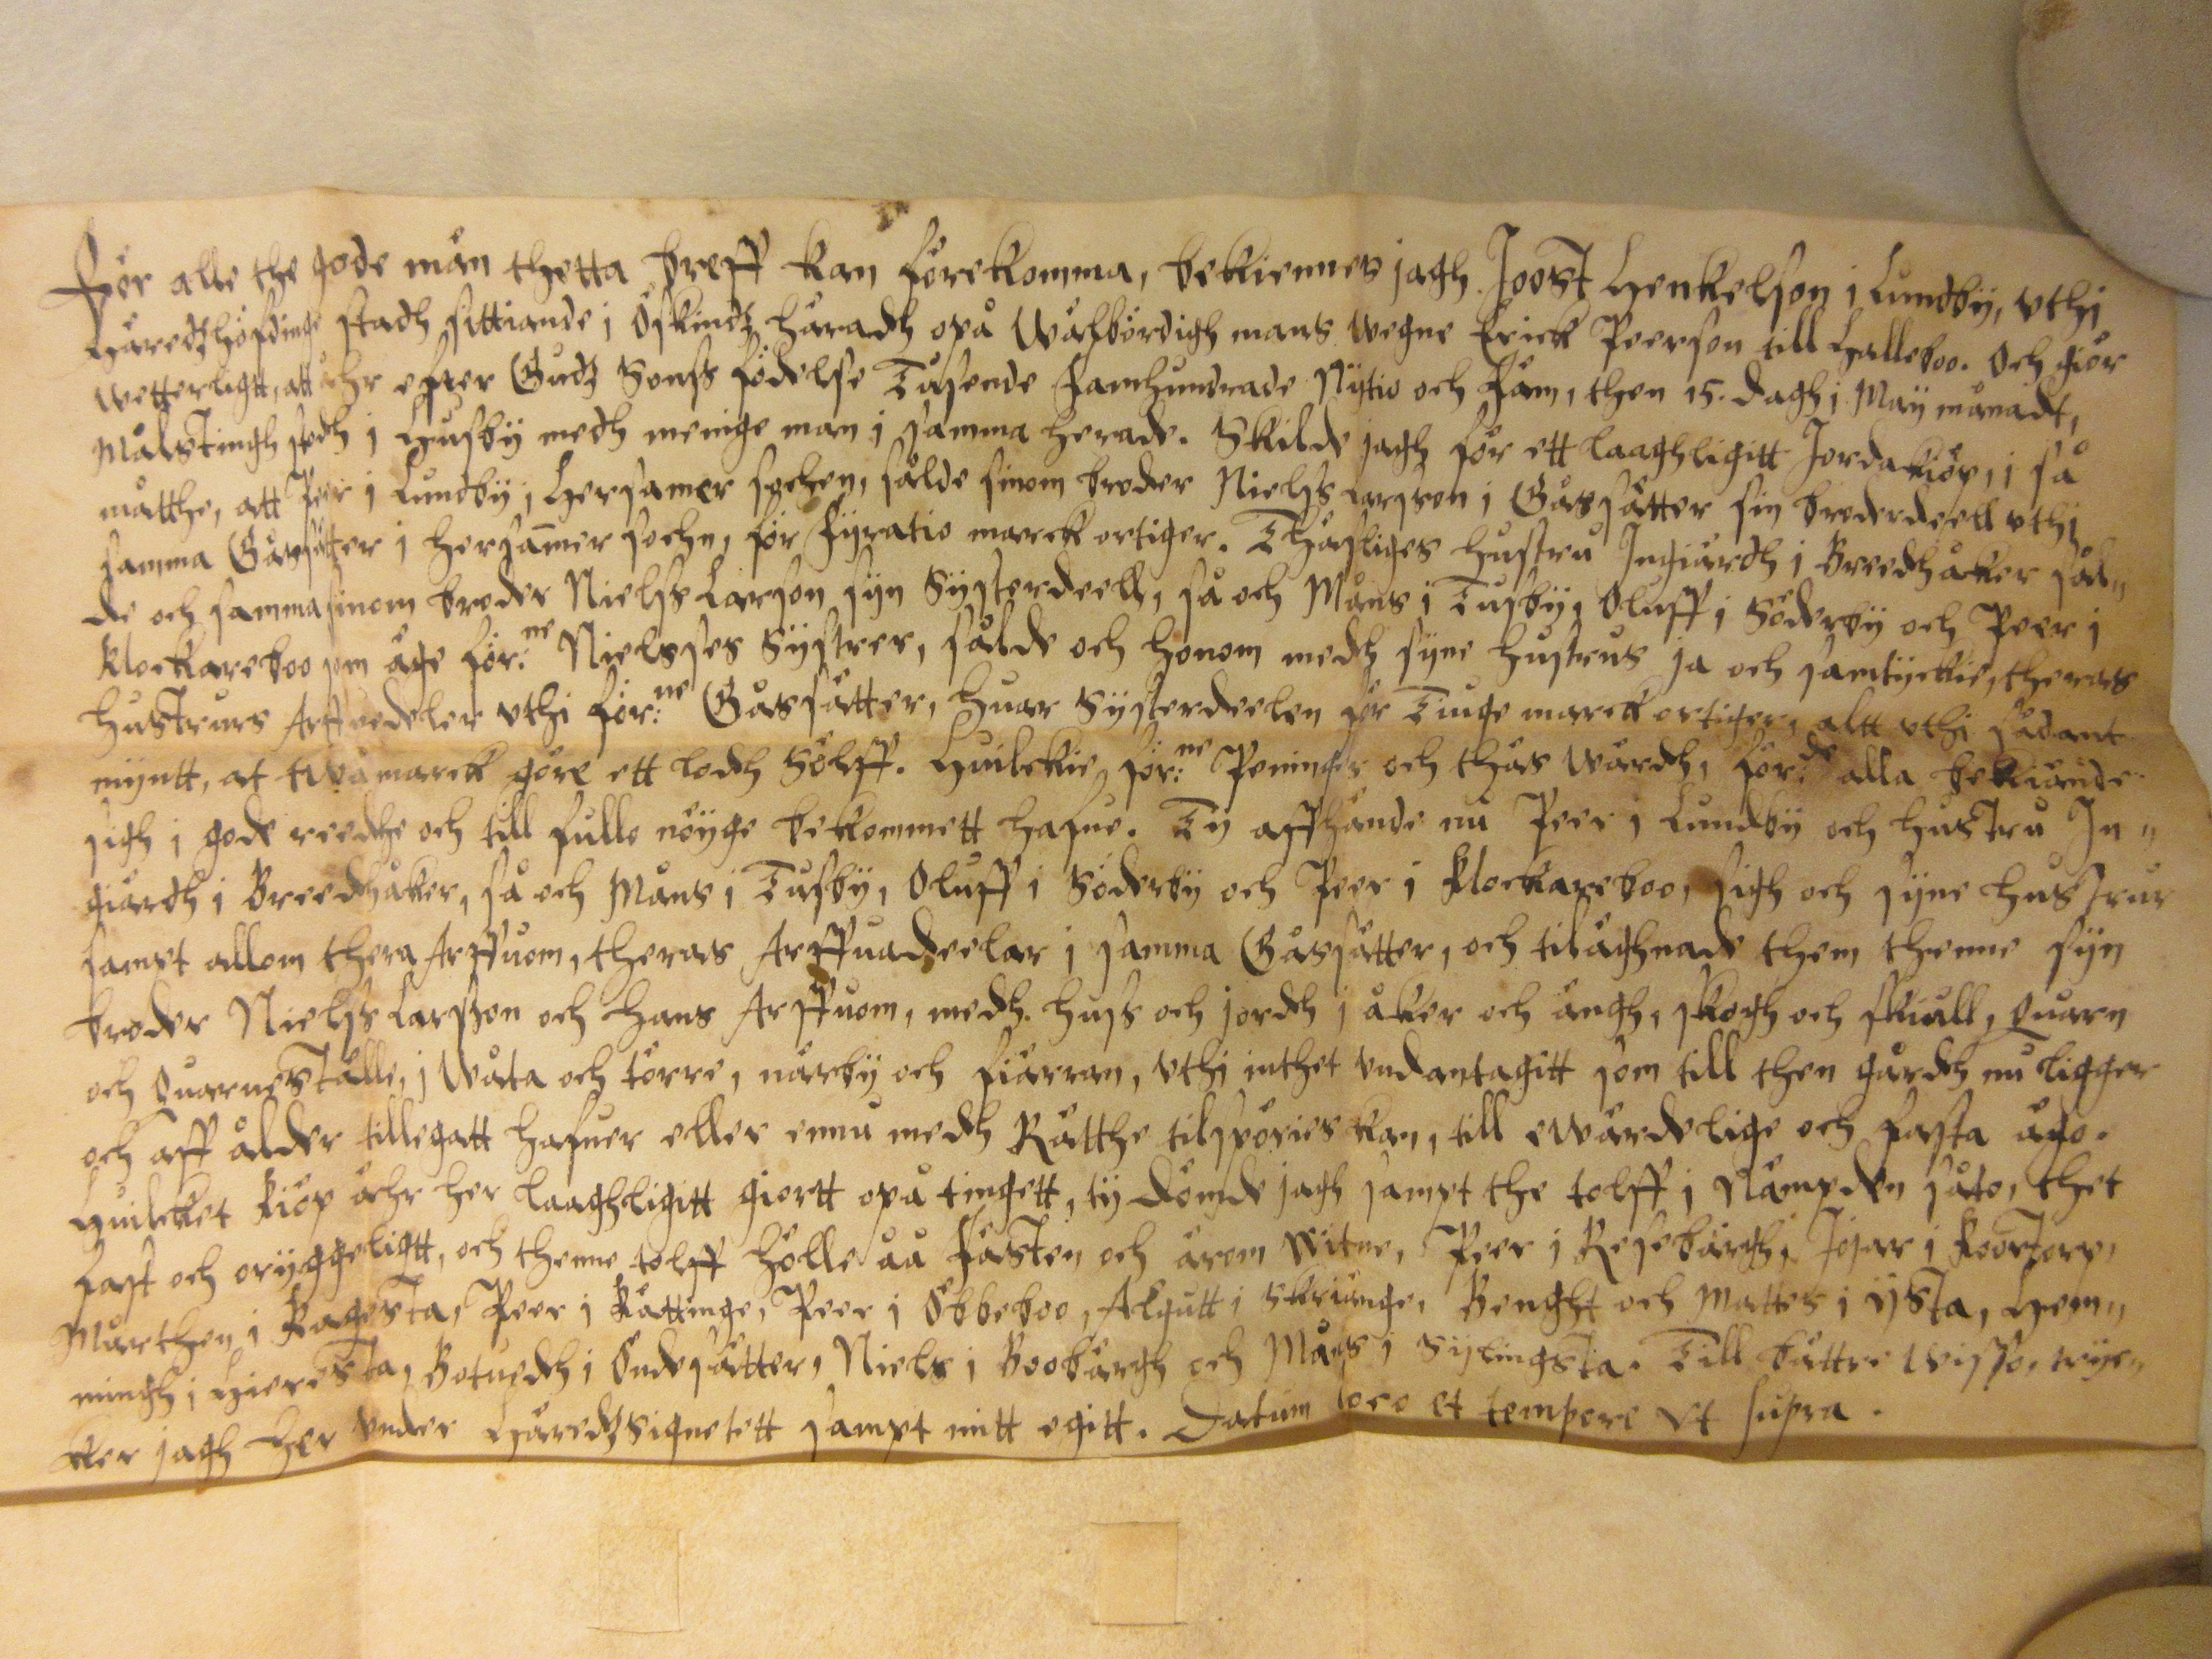 För alle the gode män thetta breff kan förekomma, bekiennes jagh Joost Henkelson i Lundby, vthi
Häredzhöfdinge stadh sittiande i Öskindz häradh opå Wälbördigh mans wegne Erick Peerson till Halleboo. Och giör
wetterligtt, att åhr efter Gudz Sonss födelse Tusende Famhundrade Nijtio och Fäm, then 15. dagh i Maij månadt,
Målstingh stodh i Husby medh menige man i samma herade. Skilde jagh för ett laaghligitt Jordakiöp, i så
matthe, att Peer i Lundby i Hersamer sochen, sålde sinom broder Nielss Larsson i Gåssätter sin broderdeell vthi
samma Gåssätter i Hersamer sochn, för Fyratio marck ortiger. Thäsliges hustru Ingiärdh i Breedhåker sål„
de och samma sinom broder Nielss Larson sijn Systerdeell, så och Måns i Tusby, Oluff i Söderby och Peer i
Klockareboo som äge för:ne Nielsses Systrer, sålde och honom medh sijne hustrus ja och samtyckie, theras
hustrurs Arffuedeler vthi för:ne Gåssätter, huar Systerdeelen för Tiuge marck ortiger, altt vthi sådant
myntt, at twå marck göre ett lodh Sölff. Huilckie för:ne Peninger och thäs wärdh, för:de alla bekiände
sigh i gode reedhe och till fullo nöyge bekommett hafue. Ty affhände nu Peer i Lundby och hustru In„
giärdh i Breedhåker, så och Måns i Tusby, Oluff i Söderby och Peer i Klockareboo, sigh och sijne hustrur
sampt allom thera Arffuom, theras Arffuadeelar i samma Gåssätter, och tilägnade them thenne sijn
broder Nielss Larsson och hans Arffuom, medh huss och jordh i åker och ängh, skogh och skiull, Quarn
och Quarneställe, i wåta och törre, närby och fiärran, vthi inthet vndantagitt som till then gårdh nu ligger
och aff ålder tillegatt hafuer eller ennu medh Rätthe tilspöries kan, till ewärdelige och fasta ägo.
Huilcket kiöp ähr her laaghligitt giortt opå tingett, ty dömde jagh sampt the tolff i Nämpden såto, thet
fast och oryggeligtt, och thenne tolff hölle åå Fasten och ärom witne, Peer i Resebärgh, Josar i Roortorp,
Mårthen i Ragesta, Peer i Rättinge, Peer i Öbbeboo, Algutt i Skriänge, Benght och Mattes i Ysta, Hem„
mingh i Hieresta, Botuedh i Öndesätter, Niels i Boobärgh och Måns i Sylingsta. Till bättre wisso, tryc„
ker jagh her vnder Häredzsignetett sampt mitt egitt. Datum loco et tempore vt supra.